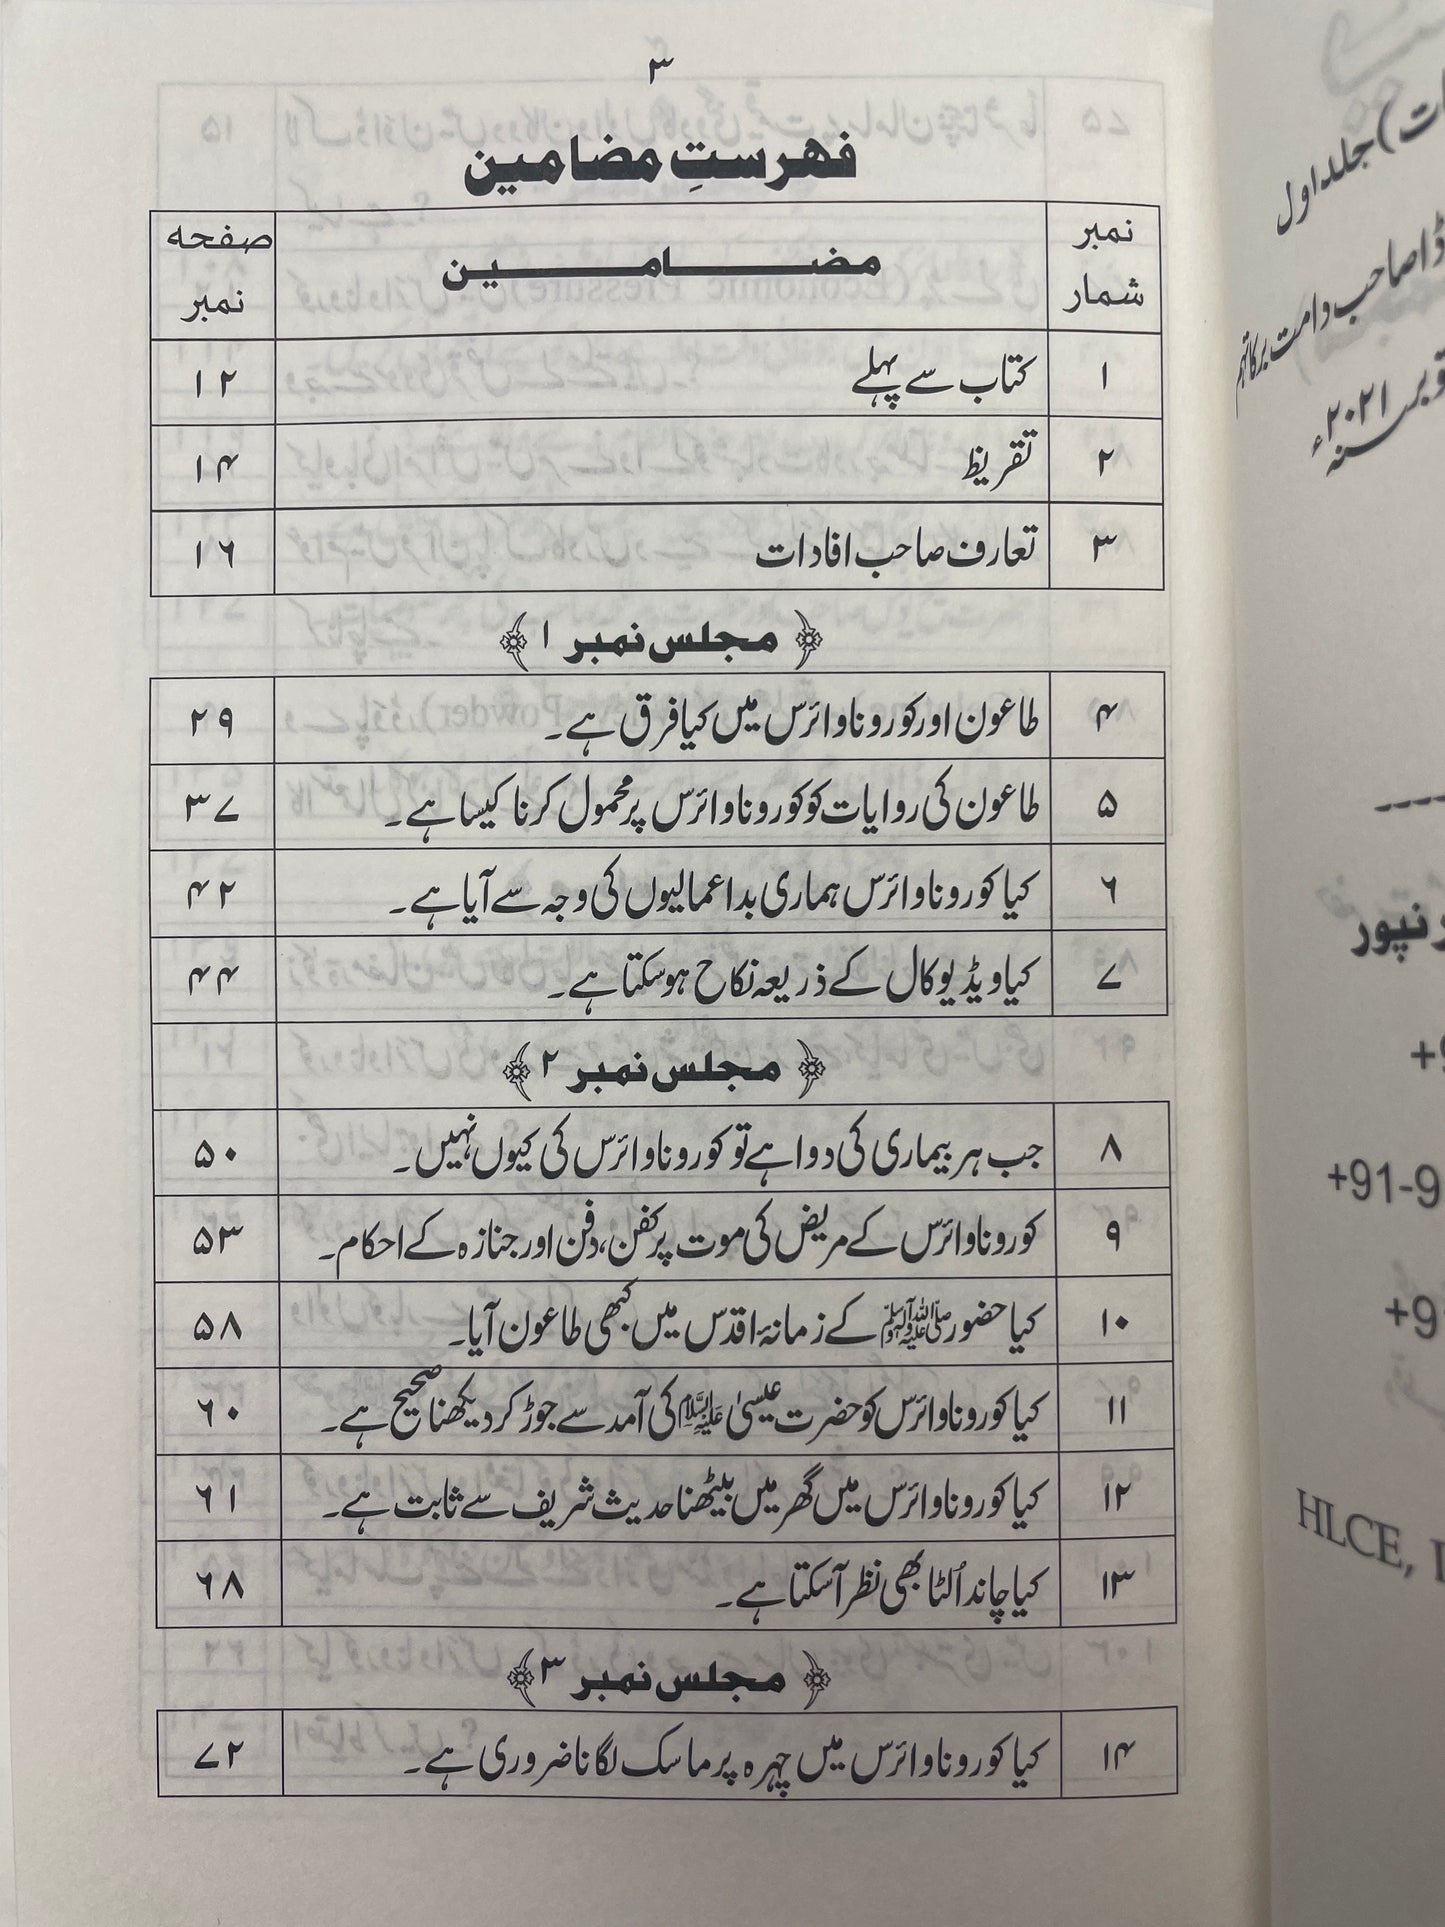 ۳
فہرستِ مضامین
نمبر شمار مضامین صفحہ نمبر
۱ کتاب سے پہلے ۱۲
۲ تقریظ ۱۴
۳ تعارف صاحب افادات ۱۶
مجلس نمبر ۱
۴ طاعون اور کورونا وائرس میں کیا فرق ہے۔ ۲۹
۵ طاعون کی روایات کو کورونا وائرس پر محمول کرنا کیسا ہے۔ ۳۷
۶ کیا کورونا وائرس ہماری بداعمالیوں کی وجہ سے آیا ہے۔ ۴۲
۷ کیا ویڈیو کال کے ذریعہ نکاح ہوسکتا ہے۔ ۴۴
مجلس نمبر ۲
۸ جب ہر بیماری کی دوا ہے تو کورونا وائرس کی کیوں نہیں۔ ۵۰
۹ کورونا وائرس کے مریض کی موت پر کفن، دفن اور جنازہ کے احکام۔ ۵۳
۱۰ کیا حضور ﷺ کے زمانۂ اقدس میں کبھی طاعون آیا۔ ۵۸
۱۱ کیا کورونا وائرس کو حضرت عیسیٰ علیہ السلام کی آمد سے جوڑ کر دیکھنا صحیح ہے۔ ۶۰
۱۲ کیا کورونا وائرس میں گھر میں بیٹھنا حدیث شریف سے ثابت ہے۔ ۶۱
۱۳ کیا چاند اُلٹا بھی نظر آسکتا ہے۔ ۶۸
مجلس نمبر ۳
۱۴ کیا کورونا وائرس میں چہرہ پر ماسک لگانا ضروری ہے۔ ۷۲
جلد اول
صاحب دامت برکاتہم
۲۰۲۱ء
+91-9
+9
HLCE,